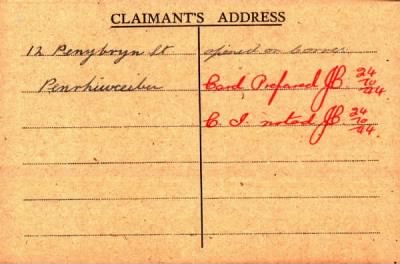 CLAIMANT'S ADDRESS
12 Penybryn St
Penrhiwceiber
opened on
Card Prepared JC 24/10/44
C. I. noted JC 24/10/44